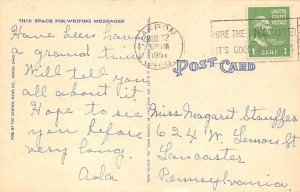 THIS SPACE FOR WRITING MESSAGES
Have been having
a grand time
Will tell you
all about it
Hope to see
you before
very long.
Ada
AKRON
AUG 12
PM
1951
OHIO
HIRE THE
IT'S GOOD BUSINESS
UNITED STATES
POSTAGE
1
POST CARD
Miss Margaret Stauffer
624 W. Lemon St
Lancaster
Pennsylvania